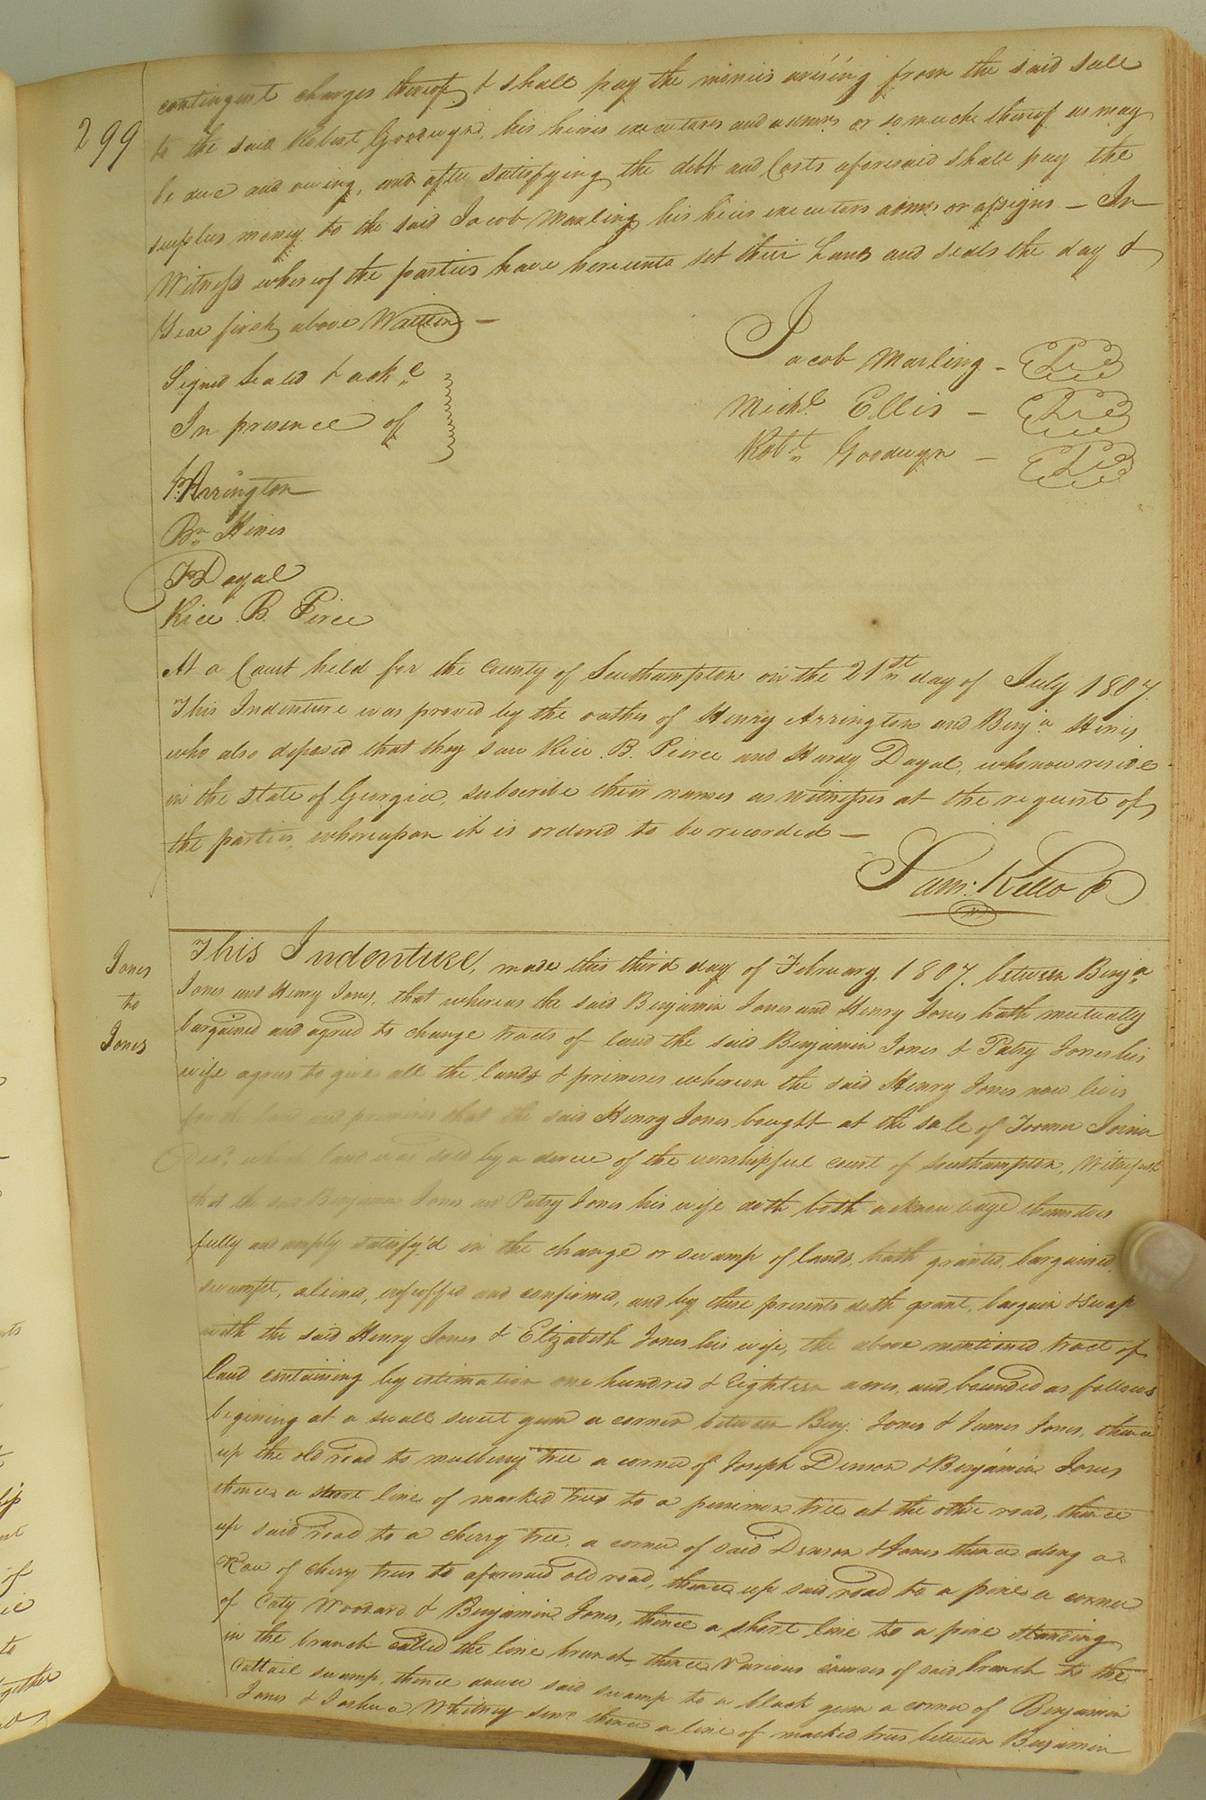 299
contingent charges thereof & shall pay the monies arising from the said sale
to the said Robert Goodwyn, his heires executors and admrs or so much thereof as may
be due and owing, and after satisfying the debt and Costs aforesaid shall pay the
surplus money to the said Jacob Marling his heirs executors admrs or assigns — In
Witness whereof the parties have hereunto set their hands and seals the day &
Year first above Written —
Signed Sealed & ackd
In presence of
Jacob Marling —
Michl Ellis —
Robt Goodwyn —
H. Arrington
Bn Hines
H Dayal
Rice B. Pirce
At a Court held for the County of Southampton on the 21st day of July 1807
This Indenture was proved by the oaths of Henry Arrington and Benja Hines
who also deposed that they saw Rice B. Peirce and Hardy Dayal, who now reside
in the State of Georgia, subscribe their names as witnesses at the request of
the parties whereupon it is ordered to be recorded —
Sam: Kello
Jones
to
Jones
This Indenture, made this third day of February 1807. between Benja
Jones and Henry Jones, that whereas the said Benjamin Jones and Henry Jones hath mutually
bargained and agreed to change tracts of land the said Benjamin Jones & Patsy Jones his
wife agrees to give all the lands & premises whereon the said Henry Jones now lives
for the land and premises that the said Henry Jones bought at the sale of Joiner
Decd which land was sold by a decree of the worshipful court of Southampton, Witnesseth
that the said Benjamin Jones and Patsy Jones his wife doth both acknowledge themselves
fully and amply satisfy'd in the change or swamp of lands, hath granted, bargained,
swampt, aliened, enfeoffed and confirmed, and by these presents doth grant, bargain & swap
with the said Henry Jones & Elizabeth Jones his wife, the above mentioned tract of
land containing by estimation one hundred & Eighteen acres, and bounded as follows
begining at a small sweet gum a corner between Benj. Jones & James Jones, thence
up the old road to mulberry tree a corner of Joseph Denson & Benjamin Jones
thence a short line of marked trees to a persimon tree at the other road, thence
up said road to a cherry tree, a corner of said Denson & Jones thence along a
Row of cherry trees to aforesaid old road, thence up said road to a pine a corner
of Caty Woodard & Benjamin Jones, thence a short line to a pine standing
in the branch called the line branch thence various courses of said branch to the
Cattail swamp, thence down said swamp to a black gum a corner of Benjamin
Jones & Joshua Whitney senr thence a line of marked trees between Benjamin